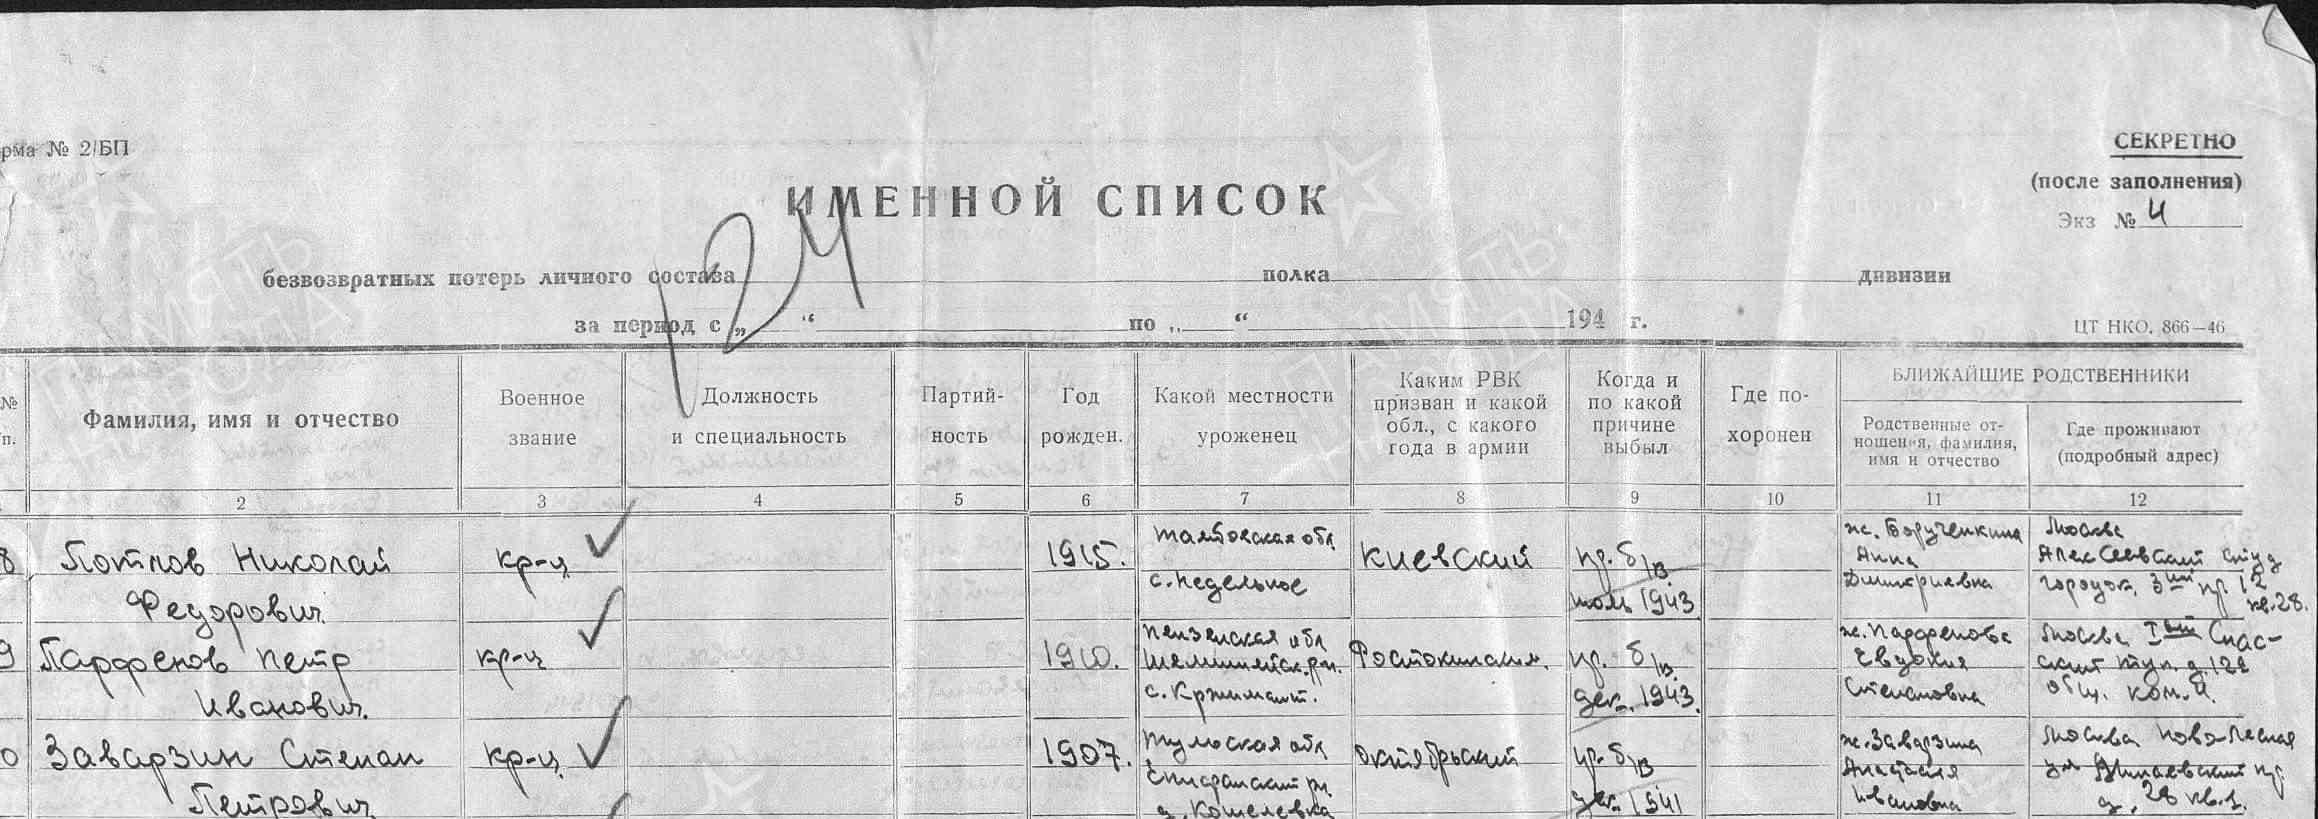 рма № 2/БП
СЕКРЕТНО
(после заполнения)
Экз № 4
ИМЕННОЙ СПИСОК
124
безвозвратных потерь личного состава полка дивизии
за период с „ “ по „ “ 194 г.
ЦТ НКО. 866—46
№ п.
Фамилия, имя и отчество
Военное звание
Должность и специальность
Партий-
ность
Год рожден.
Какой местности уроженец
Каким РВК
призван и какой
обл., с какого
года в армии
Когда и
по какой
причине
выбыл
Где по-
хоронен
БЛИЖАЙШИЕ РОДСТВЕННИКИ
Родственные от-
ношения, фамилия,
имя и отчество
Где проживают
(подробный адрес)
2 3 4 5 6 7 8 9 10 11 12
8 Николай
Федорович
кр-ц
1915.
обл
с. Недельное
Киевский
пр. б/в.
1943
ж.
Анна
Дмитриевна
Москва
Алексеевский студ
городок 3ий пр. 12
кв. 28.
9 Парфенов Петр
Иванович
кр-ц
1910.
Пензенская обл
Шемышейск. рн.
с.
Ростокинский.
пр. б/в.
дек. 1943.
ж. Парфенова
Евдокия
Степановна
Москва Iый Спас-
ский туп. д. 12
общ. ком. 4.
0 Заварзин Степан
Петрович
кр-ц
1907.
Тульская обл
Епифанский рн.
д. Кошелевка
Октябрьский
пр. б/в
дек. 1941
ж. Заварзина
Анастасия
Ивановна
Москва Ново-Лесная
ул пр.
д. 28 кв. 1.